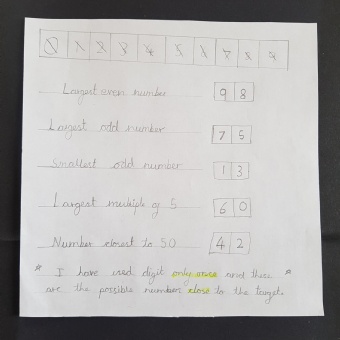 0 1 2 3 4 5 6 7 8 9
Largest even number 9 8
Largest odd number 7 5
Smallest odd number 1 3
Largest multiple of 5 6 0
Number closest to 50 4 2
* I have used digit only once and these *
are the possible numbers close to the target.